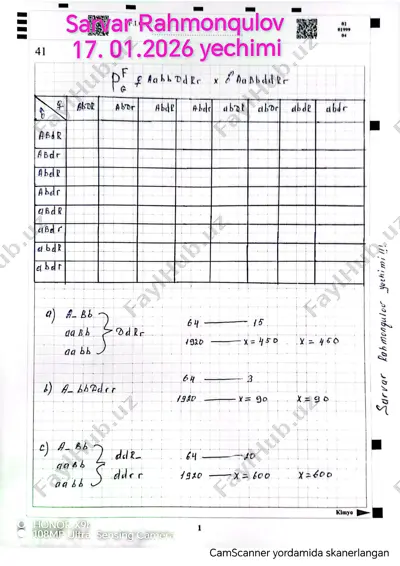 Sarvar Rahmonqulov
17. 01.2026 yechimi
01
01999
04
41
P F G ♀ AabbDdRr x ♂ AaBbddRr
♀ ♂ AbDR AbDr AbdR Abdr abDR abDr abdR abdr
ABdR
ABdr
AbdR
Abdr
aBdR
aBdr
abdR
abdr
a) A_Bb
aaBb DdRr
aabb
64 — 15
1920 — x = 450 x = 450
b) A_bbDdrr
64 — 3
1920 — x = 90 x = 90
c) A_Bb
aaBb ddR_
aabb ddrr
64 — 20
1920 — x = 600 x = 600
Sarvar Rahmonqulov yechimi!!!
Kimyo
1
FaylHub.uz
HONOR X9b
108MP Ultra Sensing Camera
CamScanner yordamida skanerlangan